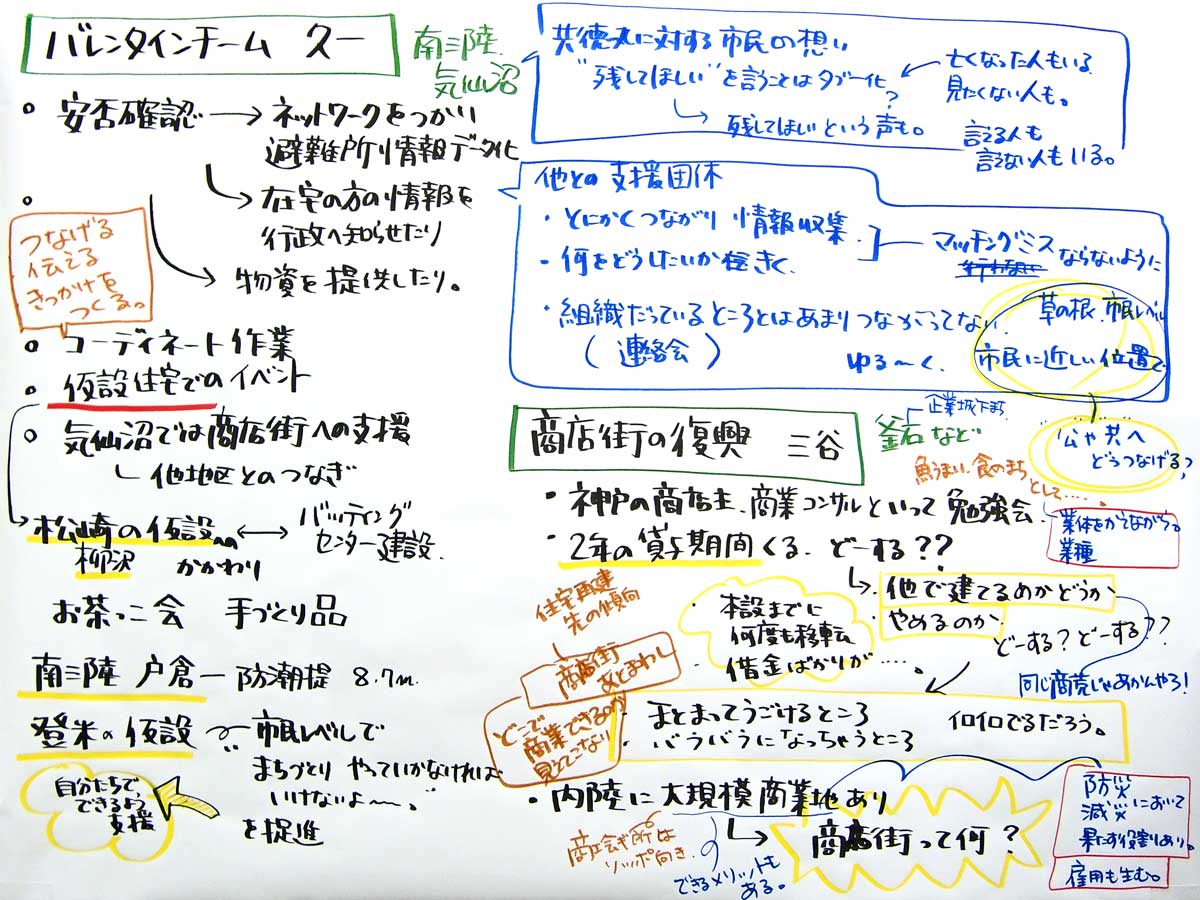 バレンタインチーム 久一
南三陸
気仙沼
安否確認 → ネットワークをつかい
避難所情報データ化
→ 在宅の方の情報を
行政へ知らせたり
→ 物資を提供したり。
つなげる
伝える
きっかけを
つくる。
コーディネート作業
仮設住宅でのイベント
気仙沼では商店街への支援
他地区とのつなぎ
松崎の仮設 ↔ バッティング
センター建設
柳沢 かかわり
お茶っこ会 手づくり品
南三陸 戸倉 ー 防潮堤 8.7m
登米の仮設 市民レベルで
まちづくり やっていかなければ
いけないよ〜。
を提進
自分たちで、
できるよう
支援
共徳丸に対する市民の想い
"残してほしい"を言うことはタブー化?
→ 残してほしいという声も。
亡くなった人もいる
見たくない人も。
言える人も
言えない人もいる。
他との支援団体
・とにかくつながり 情報収集
・何をどうしたいかをきく
マッチングミス
ならないように
・組織だっているところとはあまりつながってない
(連絡会)
ゆる〜く
草の根、市民レベル
市民に近しい位置で
公や共へ
どうつなげる?
商店街の復興 三谷
企業城下まち
釜石など
魚うまい、食のまち
として……
・神戸の商店主、商業コンサルといって勉強会
業体をかえながら。
業種
・2年の貸与期間くる。どーする??
→ 他で建てるめかどうか
やめるのか
どーする?どーする??
同じ商売じゃあかんやろ!
・本設までに
何度も移転
借金ばかりが……
住宅再建
先の傾向
商店街
あとまわし
どこで
商業できるのか
見えてこない
・まとまってうごけるところ
・バラバラになっちゃうところ
イロイロでるだろう。
・内陸に大規模商業地あり
→ 商店街って何?
商工会議所は
ソッポ向き
できるメリットも
ある。
防災
減災において
果たす役割あり。
雇用も生む。